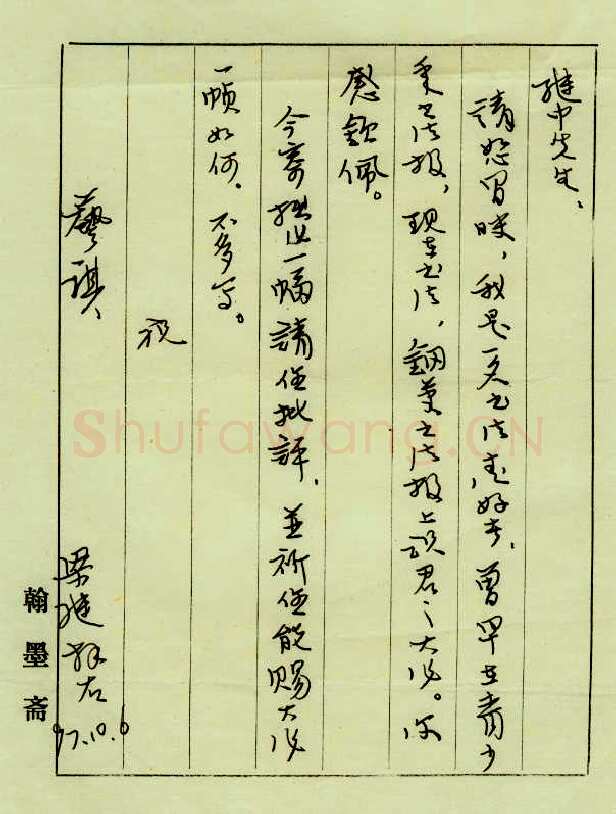 继中先生、
請恕冒昧，我是一名书法爱好者、曾早在青少
年书法报，现在书法，鋼筆书法报上识君之大作。深
感欽佩。
今寄拙作一幅請您批評，並祈您能賜大作
一幀如何。不多写。
祝
藝祺、
梁继
97.10.6
翰墨斋
Shufawang.CN